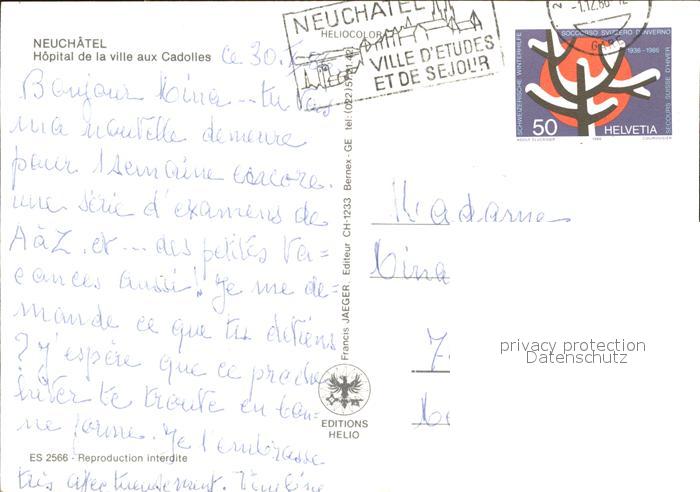 NEUCHÂTEL
Hôpital de la ville aux Cadolles
ce 30.
Bonjour Nina .. tu vas
ma nouvelle demeure
pour 1 semaine encore.
une série d'examens de
A à Z. et ... des petites va=
cances aussi! Je me de=
mande ce que tu deviens
? J'espère que ce prochain
hiver te trouve en bon=
ne forme. Je t'embrasse
très affectueusement.
ES 2566 - Reproduction interdite
HELIOCOLOR
Francis JAEGER, Editeur CH-1233 Bernex - GE tél: (022)
EDITIONS
HELIO
NEUCHATEL
VILLE D'ETUDES
ET DE SEJOUR
-1.12.86-12
GARE
SCHWEIZERISCHE WINTERHILFE
SOCCORSO SVIZZERO D'INVERNO
1936-1986
SECOURS SUISSE D'HIVER
50
HELVETIA
1986
COURVOISIER
Madame
Nina
privacy protection
Datenschutz